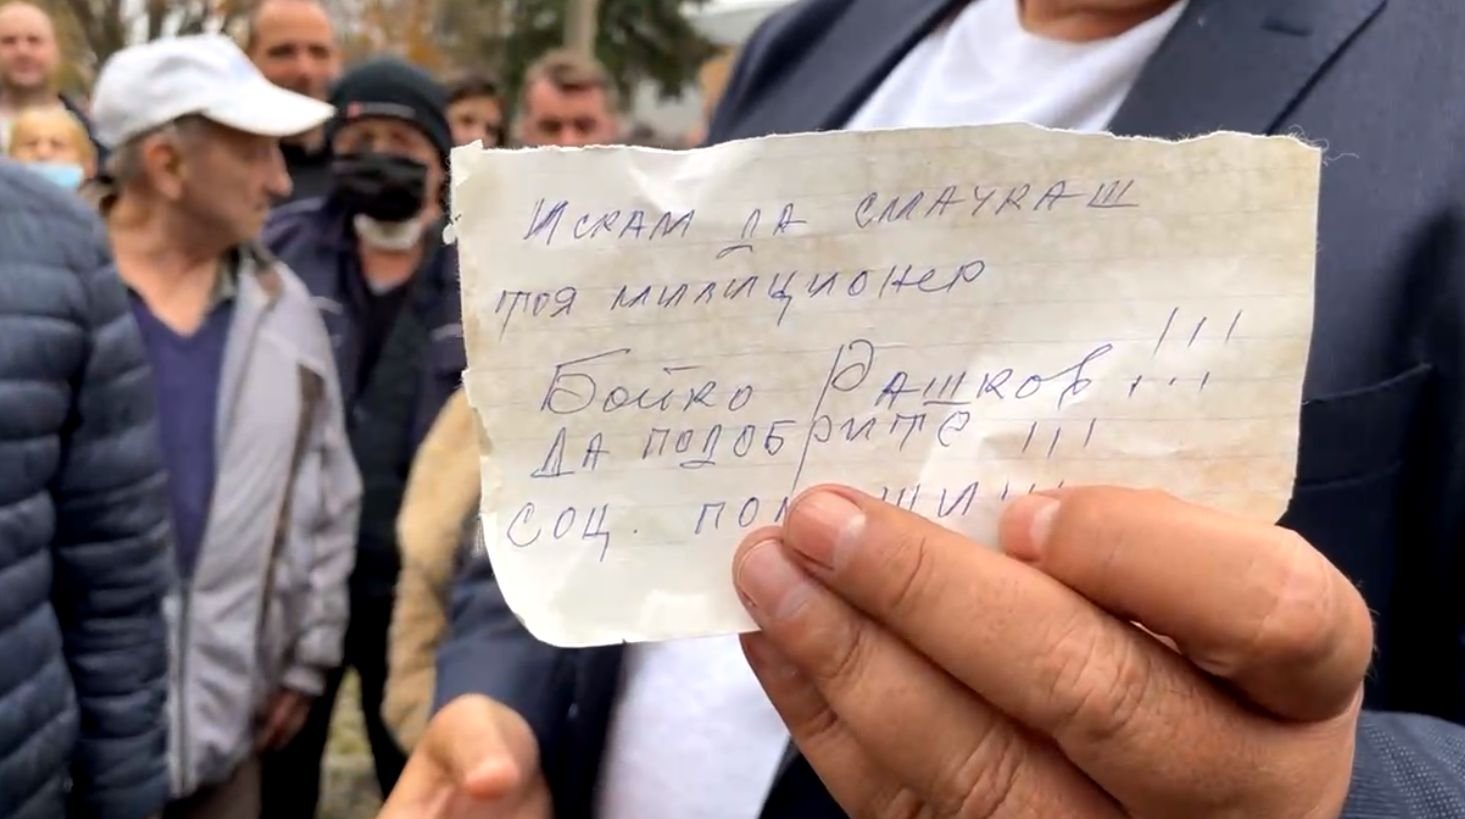 Искам да смачкаш
тоя милиционер
Бойко Рашков !!!
да подобрите !!!
соц.